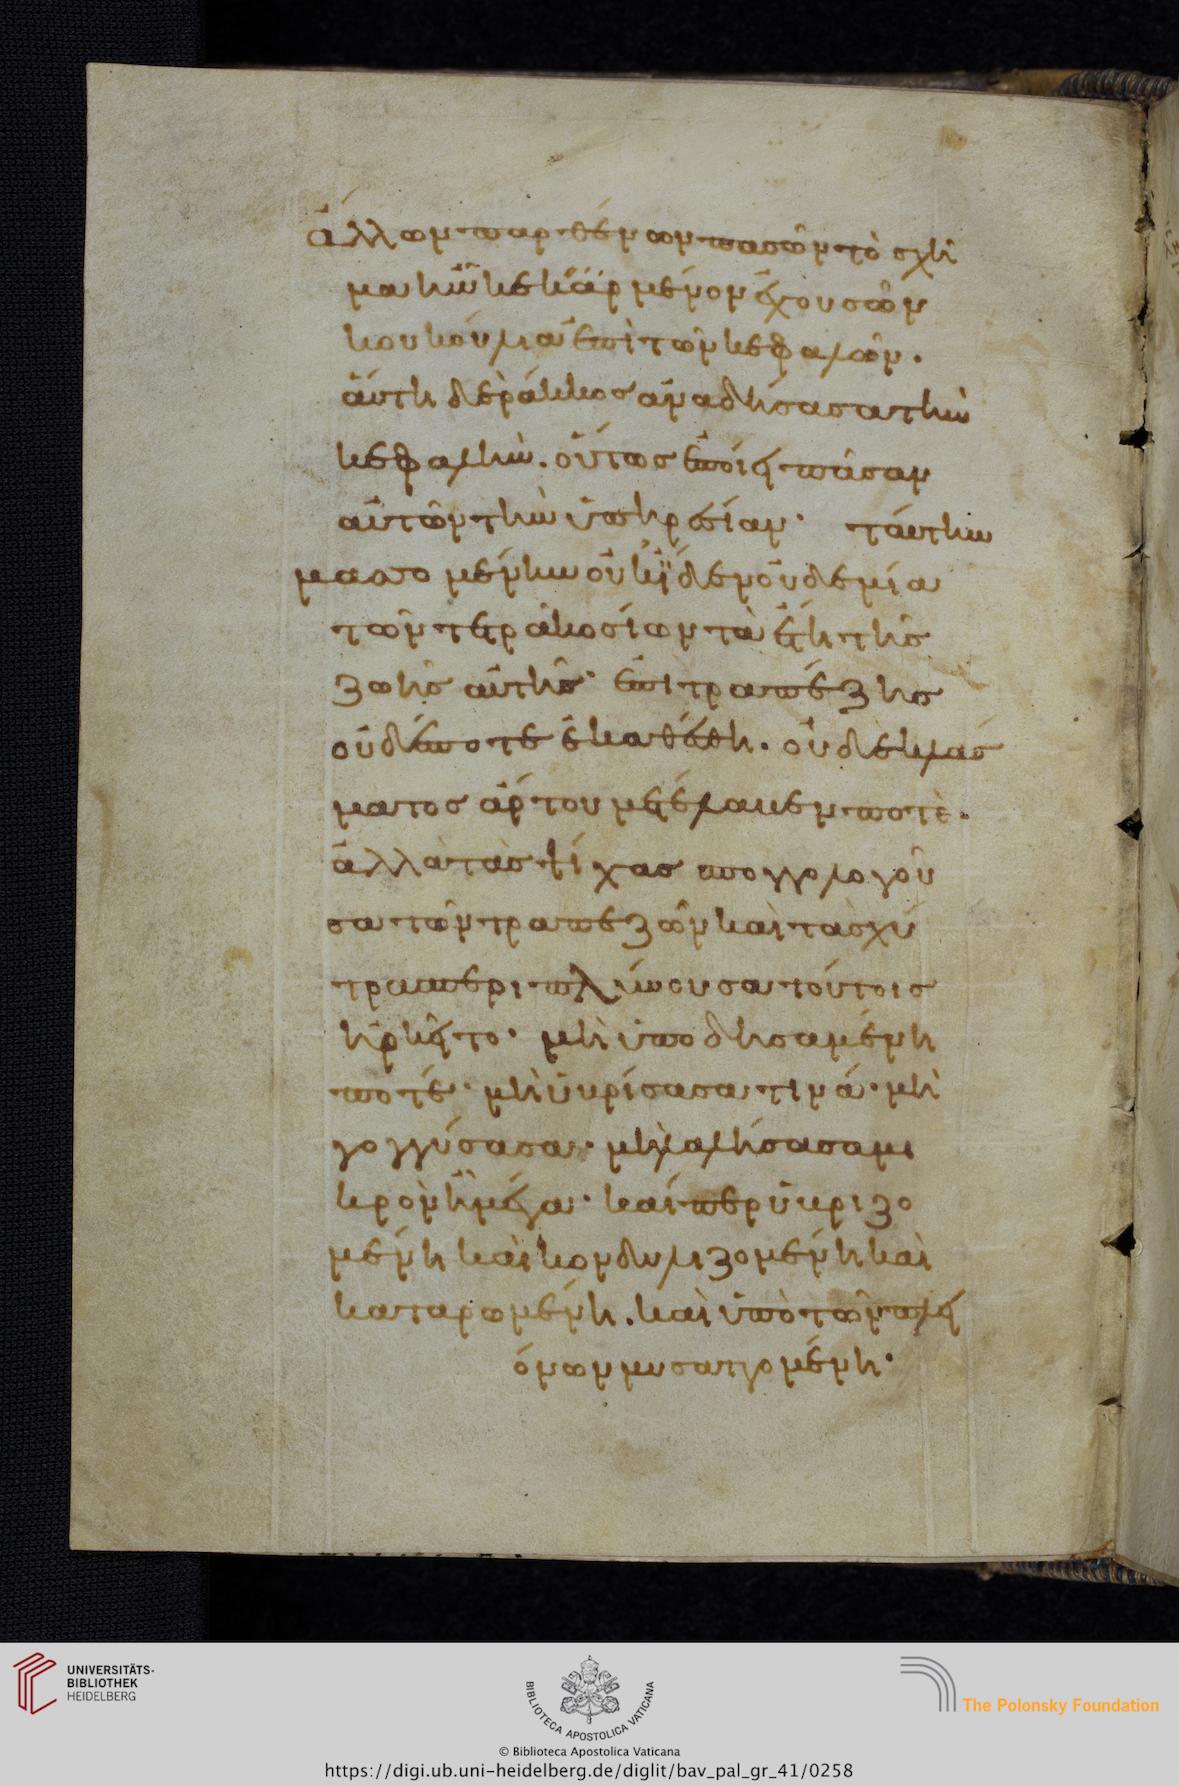 ἄλλων παρθένων πασῶν τὸ σχῆ
μα ἢν κεκάρμένον ἐχουσῶν
κουκούλια ἐπὶ τῶν κεφαλῶν.
ἀύτη δε ῥάκκος ἀναδήσασα τὴν
κεφαλὴν. οὕτως ἐποίει πᾶσαν
αὐτῶν τὴν ὑπηρεσίαν· ταύτην
μασσομένην οὐκ ἴδεν οὐδεμία
τῶν τετρακοσίων τὰ ἔτη τῆς
ζωῆς αὐτῆς· ἐπι τραπέζης
οὐδέποτε ἐκαθέσθη. οὐδε κλάσ
ματος ἄρτου μετέλαβεν ποτὲ.
ἀλλὰ τὰς ψίχας σπογγολογοῦ
σα τῶν τραπεζῶν καὶ τὰ χύ
τρα περιπλύνουσα τούτοις
ἠρκεῖτο· μὴ ὑποδησαμένη
ποτέ· μὴ ὑβρίσασα τινά· μὴ
γογγύσασα· μὴ λαλήσασα μι
κρὸν ἢ μέγα· καί περ ὑβριζο
μένη καὶ κονδυλιζομένη καὶ
καταρωμένη. καὶ ὑπὸ τῶν πλει
όνων μυσαττομένη·
UNIVERSITÄTS-
BIBLIOTHEK
HEIDELBERG
BIBLIOTECA APOSTOLICA VATICANA
The Polonsky Foundation
© Biblioteca Apostolica Vaticana
https://digi.ub.uni-heidelberg.de/diglit/bav_pal_gr_41/0258